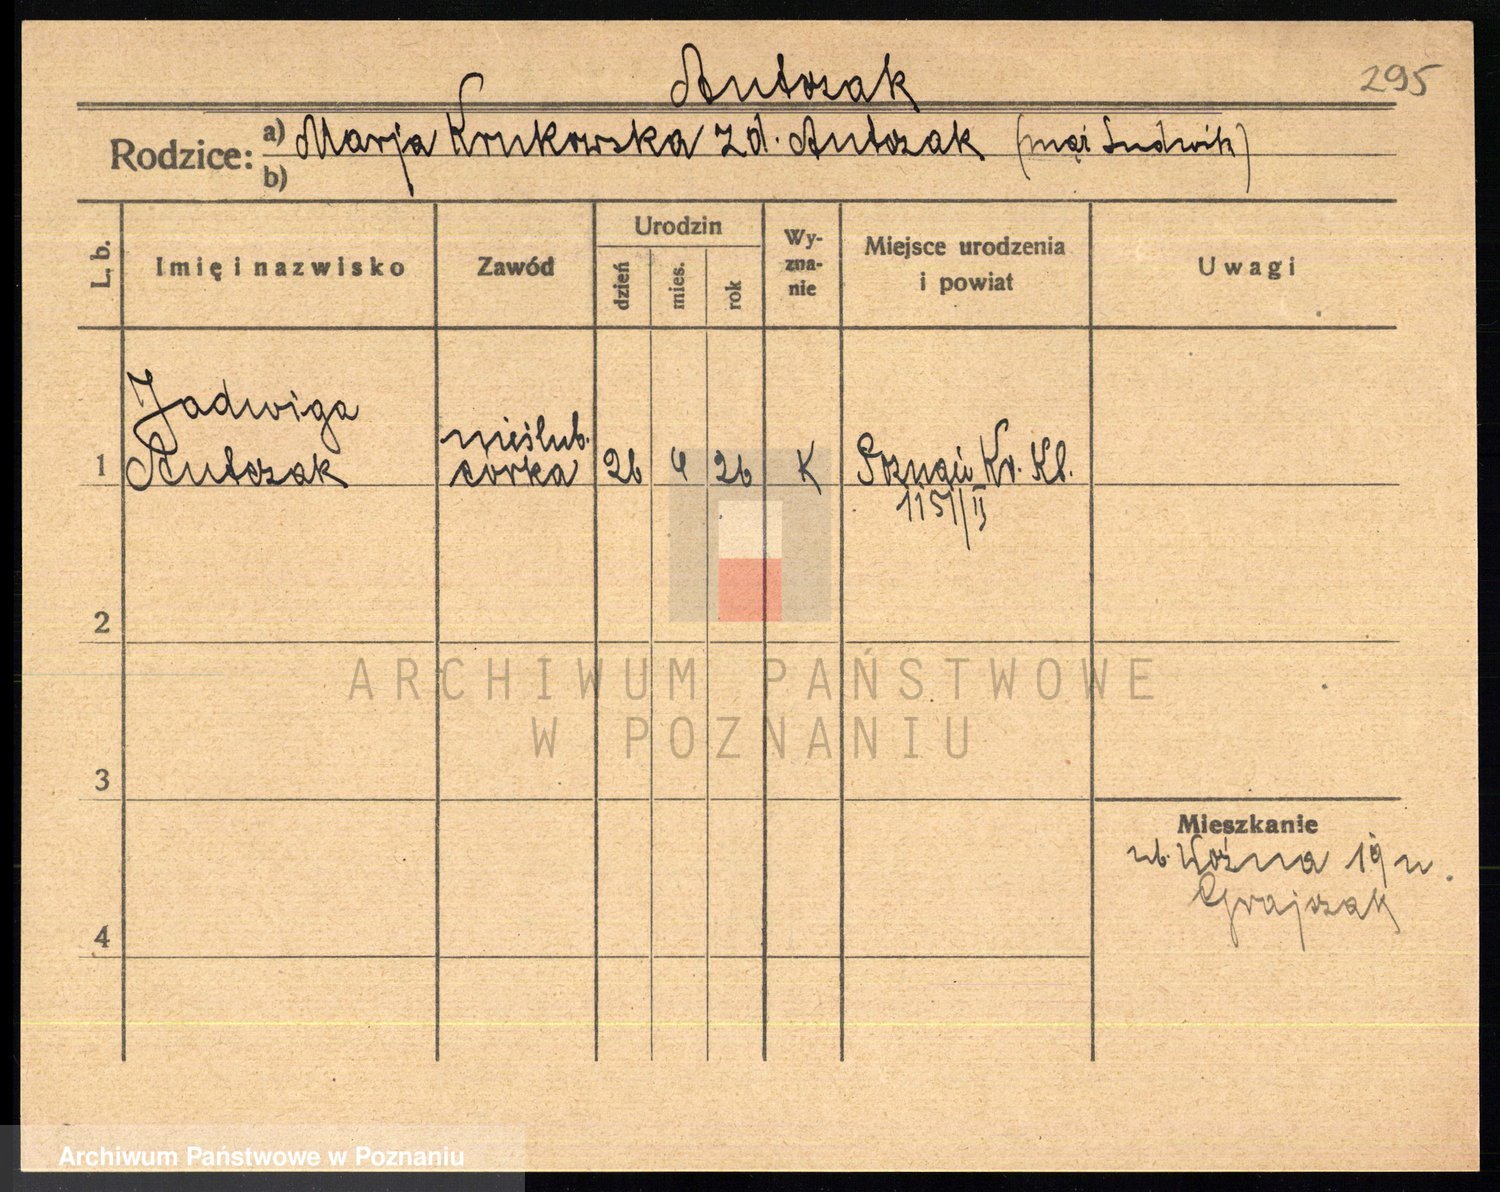 Antczak
295
Rodzice: a) Marja Krukowska zd. Antczak (mąż Ludwik)
b)
L. b.
Imię i nazwisko
Zawód
Urodzin
dzień
mies.
rok
Wy-
zna-
nie
Miejsce urodzenia
i powiat
Uwagi
Jadwiga
1 Antczak
nieślub.
córka
26 4 26 K
Poznań Kr. Kl.
1151/II
2
3
4
Mieszkanie
Woźna 19
Grajczak
ARCHIWUM PAŃSTWOWE
W POZNANIU
Archiwum Państwowe w Poznaniu